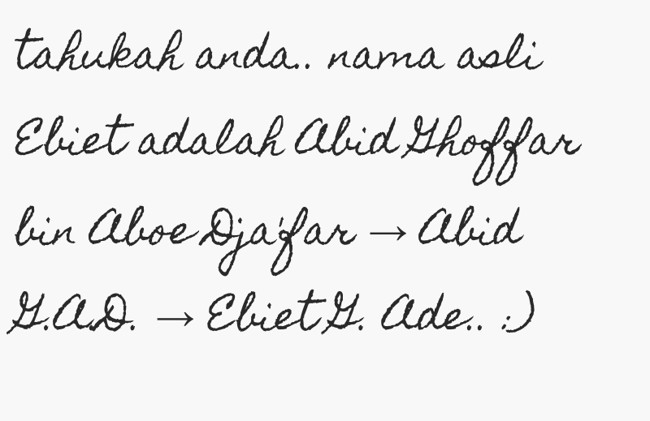 tahukah anda.. nama asli
Ebiet adalah Abid Ghoffar
bin Aboe Dja'far → Abid
G.A.D. → Ebiet G. Ade.. :)